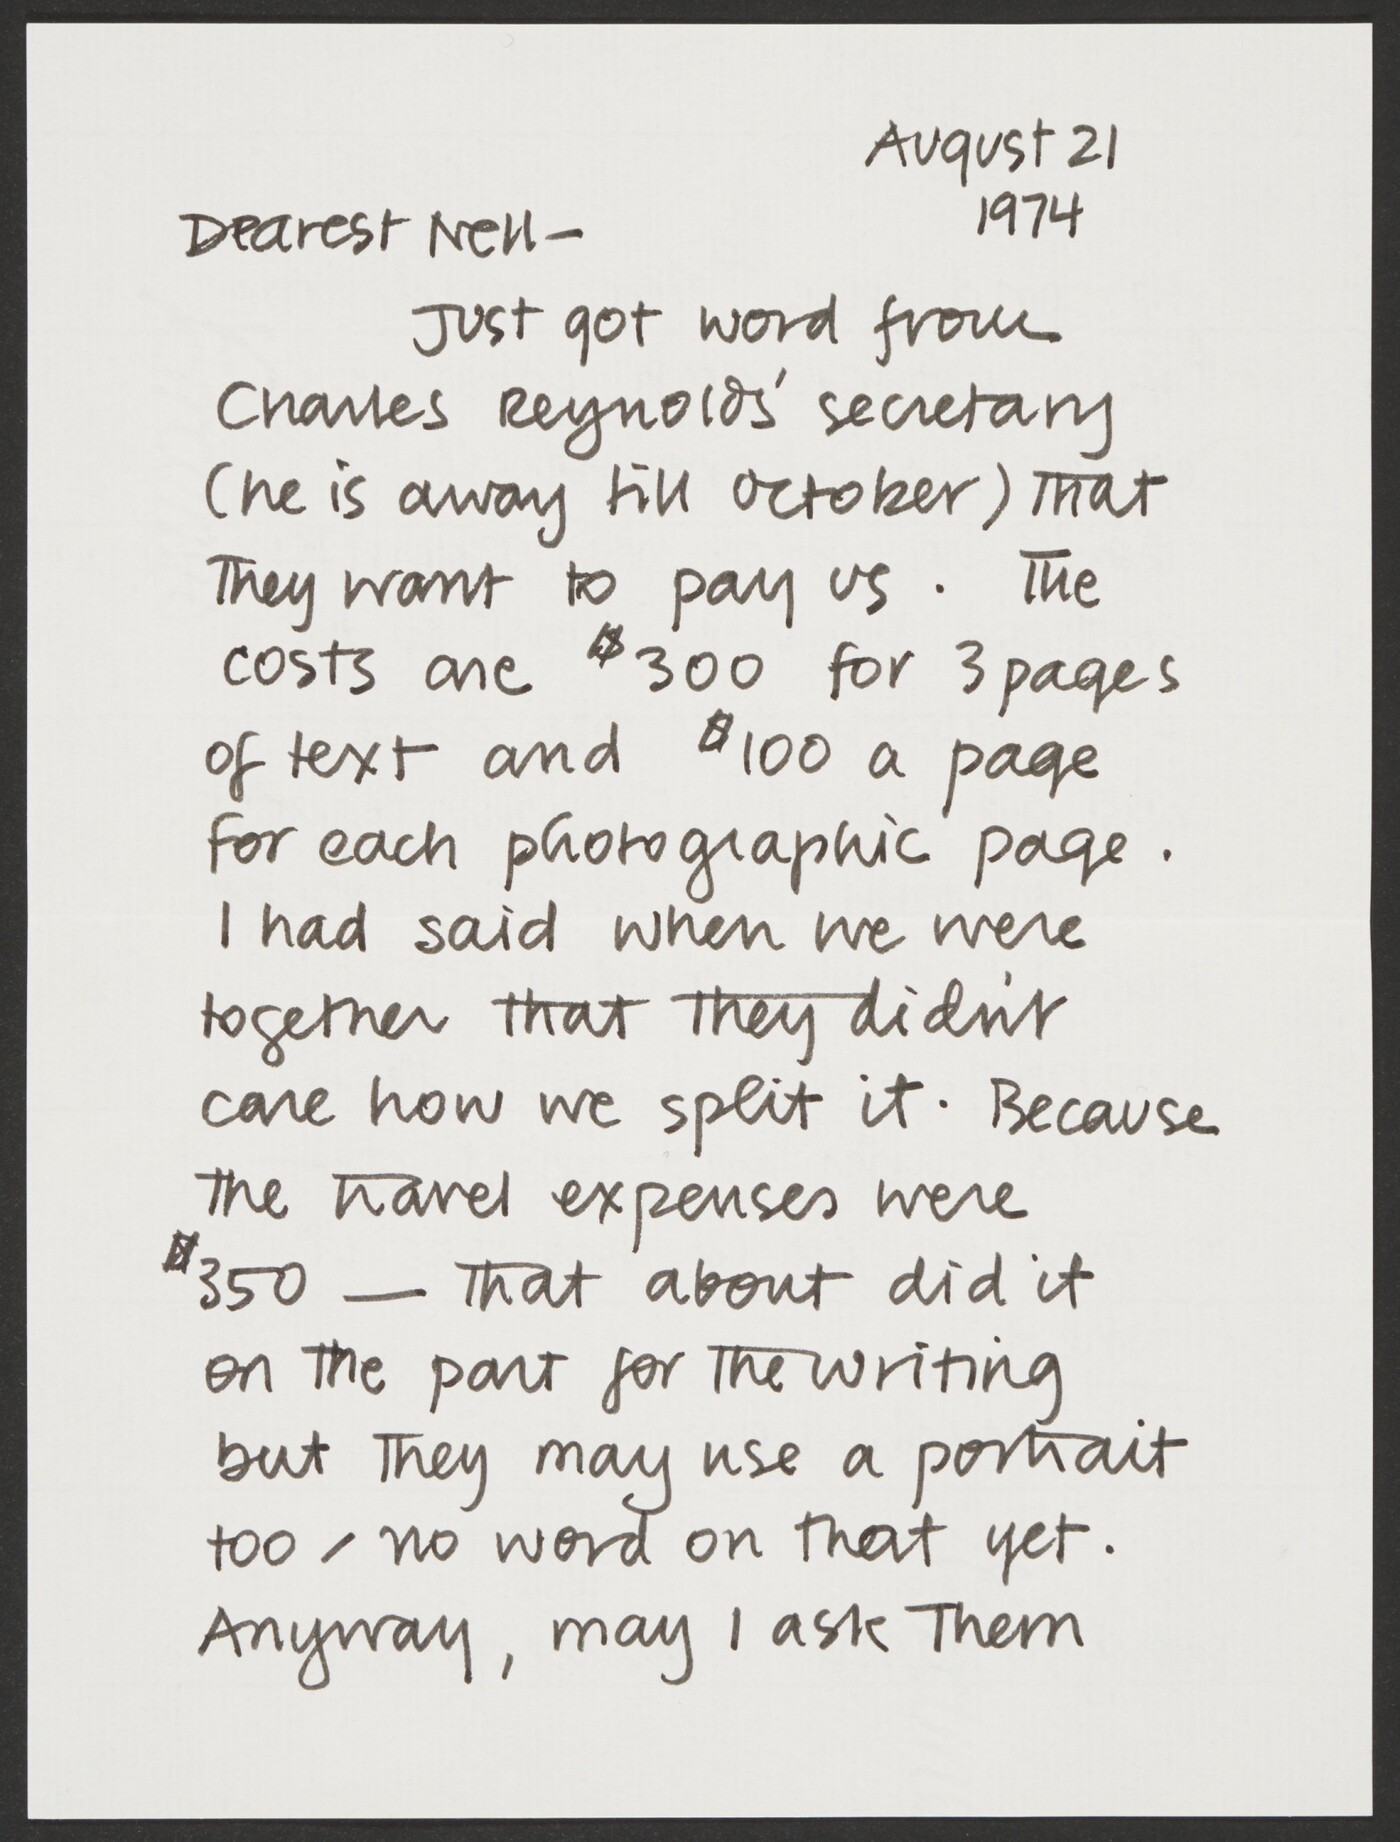 August 21
1974
Dearest Nell-
Just got word from
Charles Reynolds' secretary
(he is away till October) that
they want to pay us. The
costs are $300 for 3 pages
of text and $100 a page
for each photographic page.
I had said when we were
together that they didn't
care how we split it. Because
the travel expenses were
$350 — that about did it
on the part for the writing
but they may use a portrait
too - no word on that yet.
Anyway, may I ask them